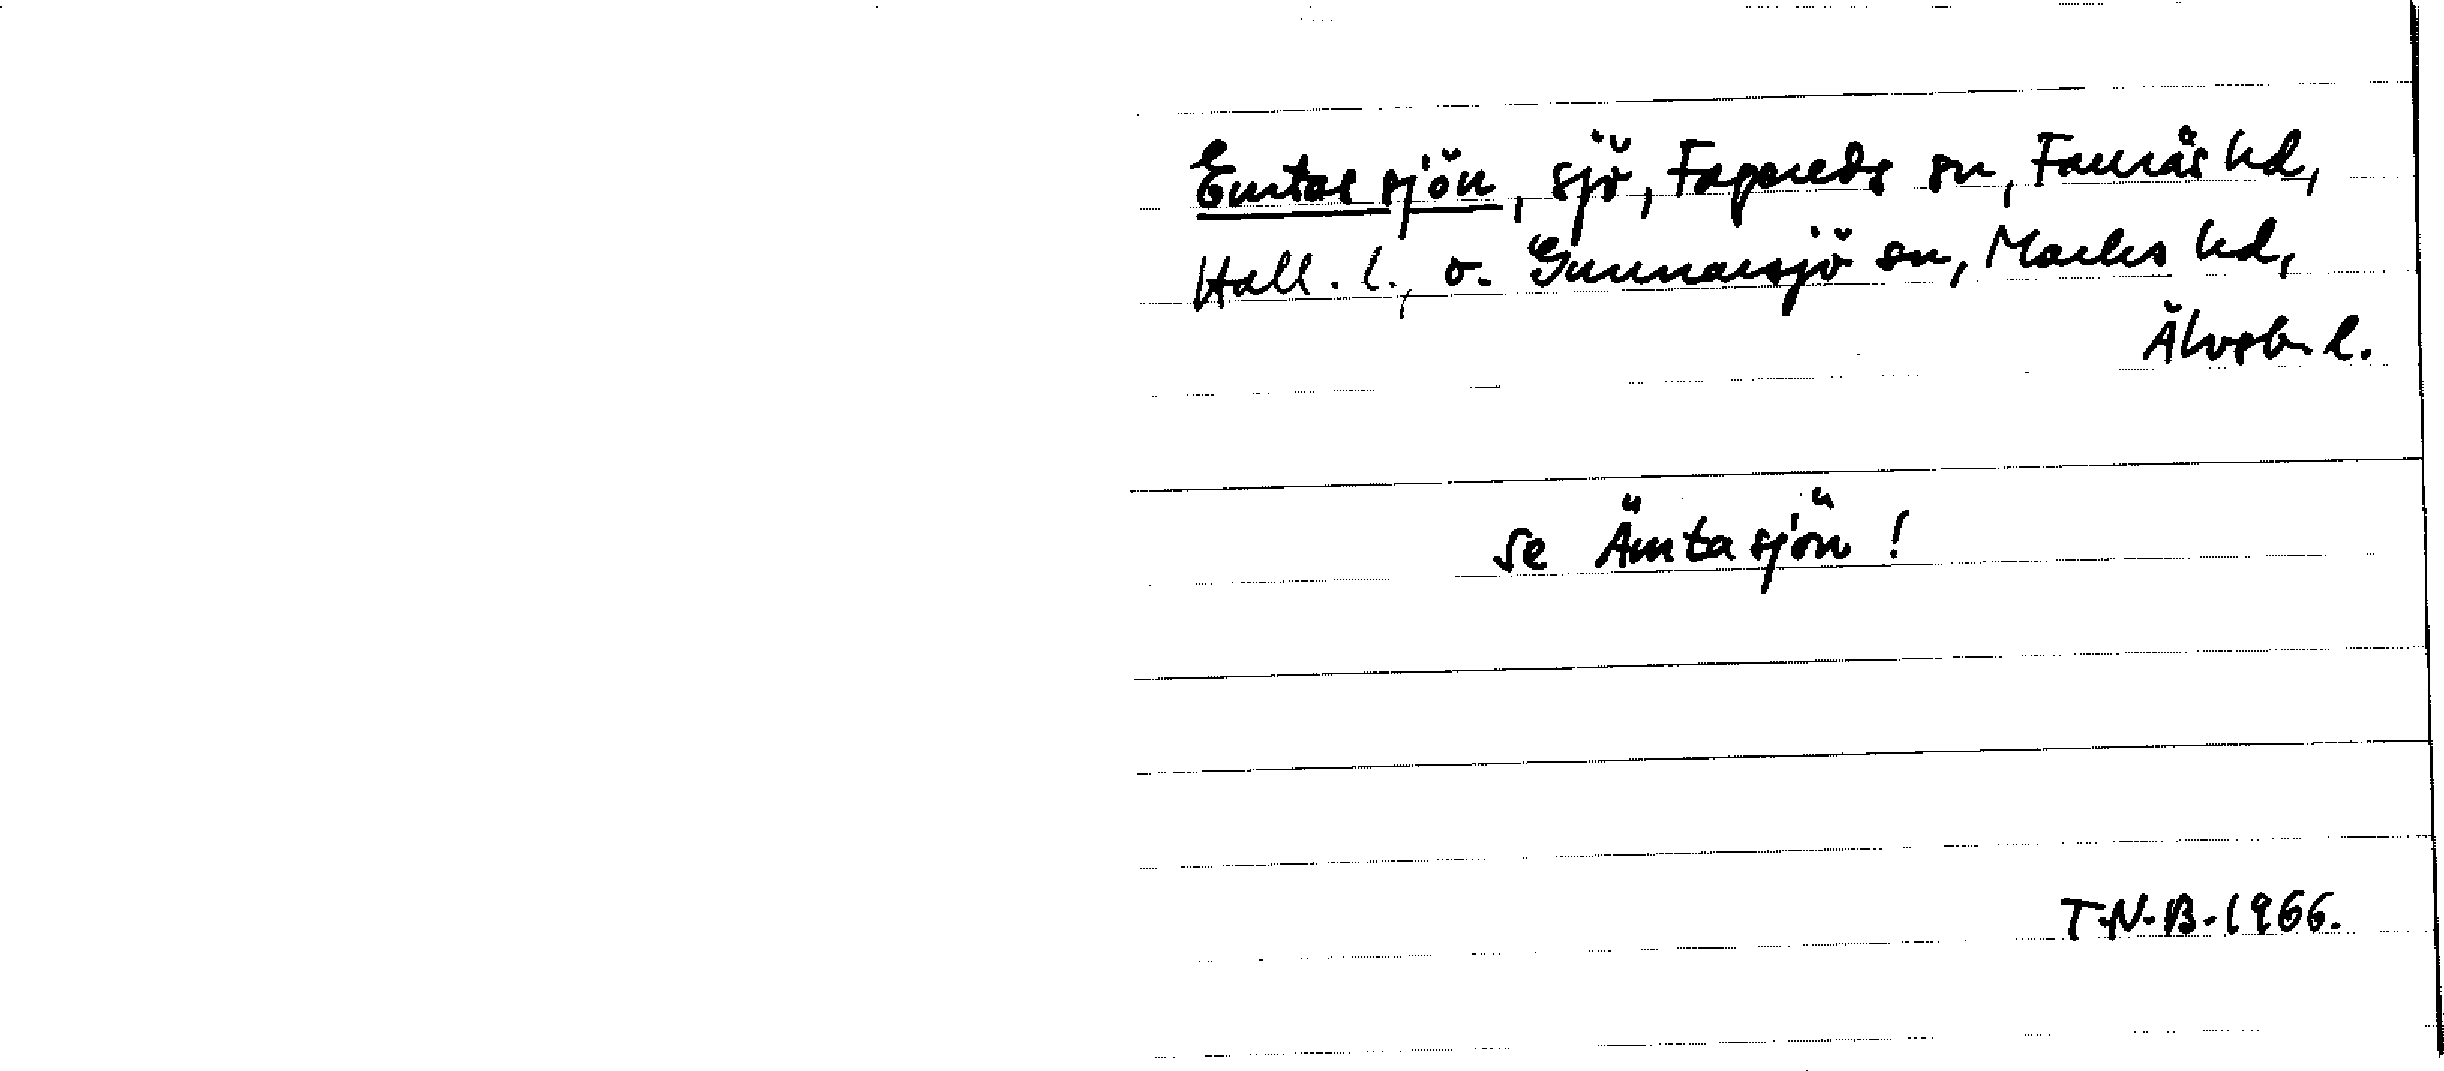 Emtassjön, sjö, Fagereds sn, Faurås hd,
Hall. l., o. Gunnarsjö sn, Marks hd,
Älvsb. l.
se Ämtasjön!
T.N.B. 1966.